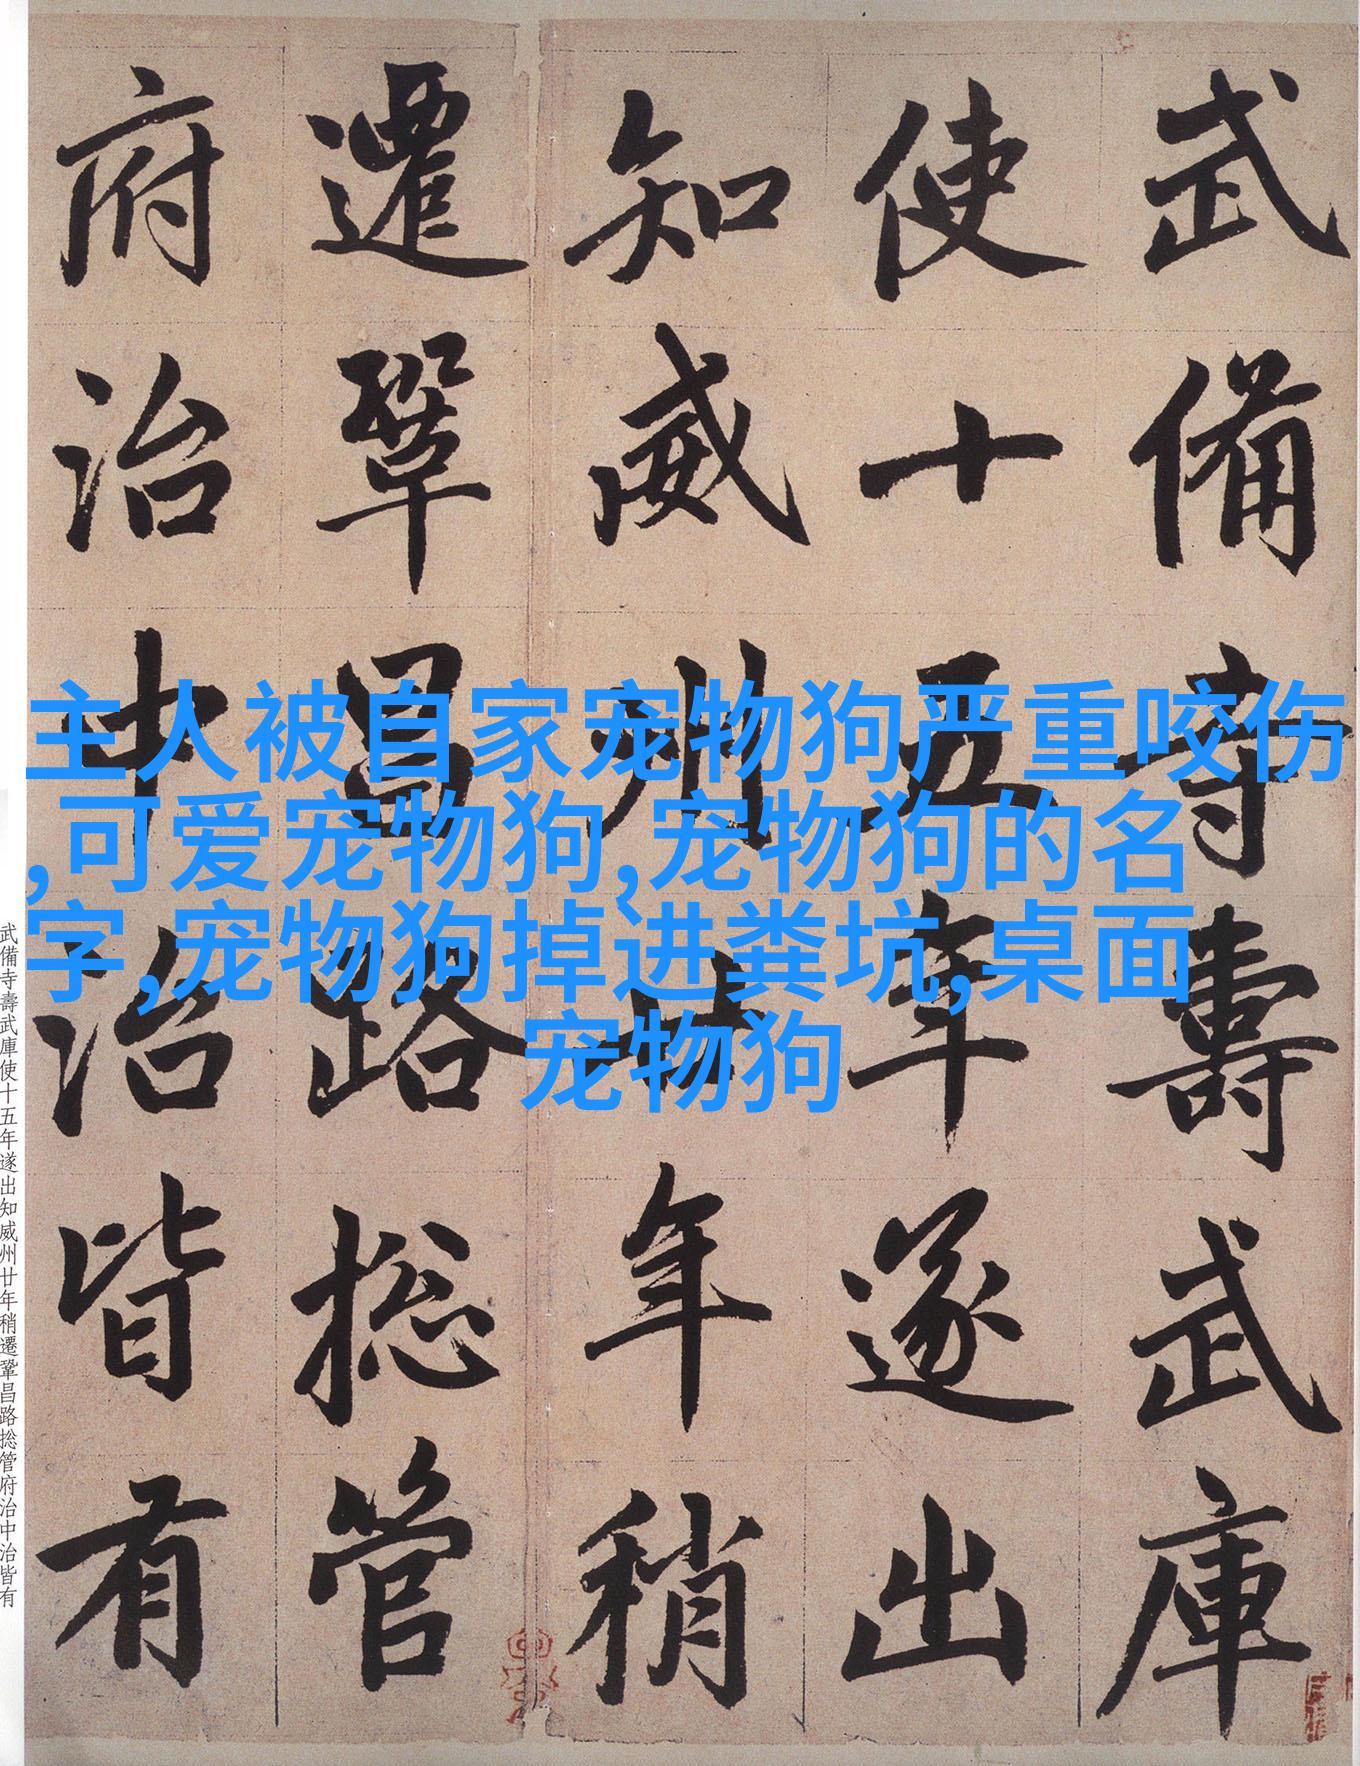 武備寺壽武庫
使十五年遂出
知威州廿年稍
遷鞏昌路捴管
府治中治皆有
主人被自家宠物狗严重咬伤
,可爱宠物狗,宠物狗的名
字,宠物狗掉进粪坑,桌面
宠物狗
武備寺壽武庫使十五年遂出知威州廿年稍遷鞏昌路捴管府治中治皆有